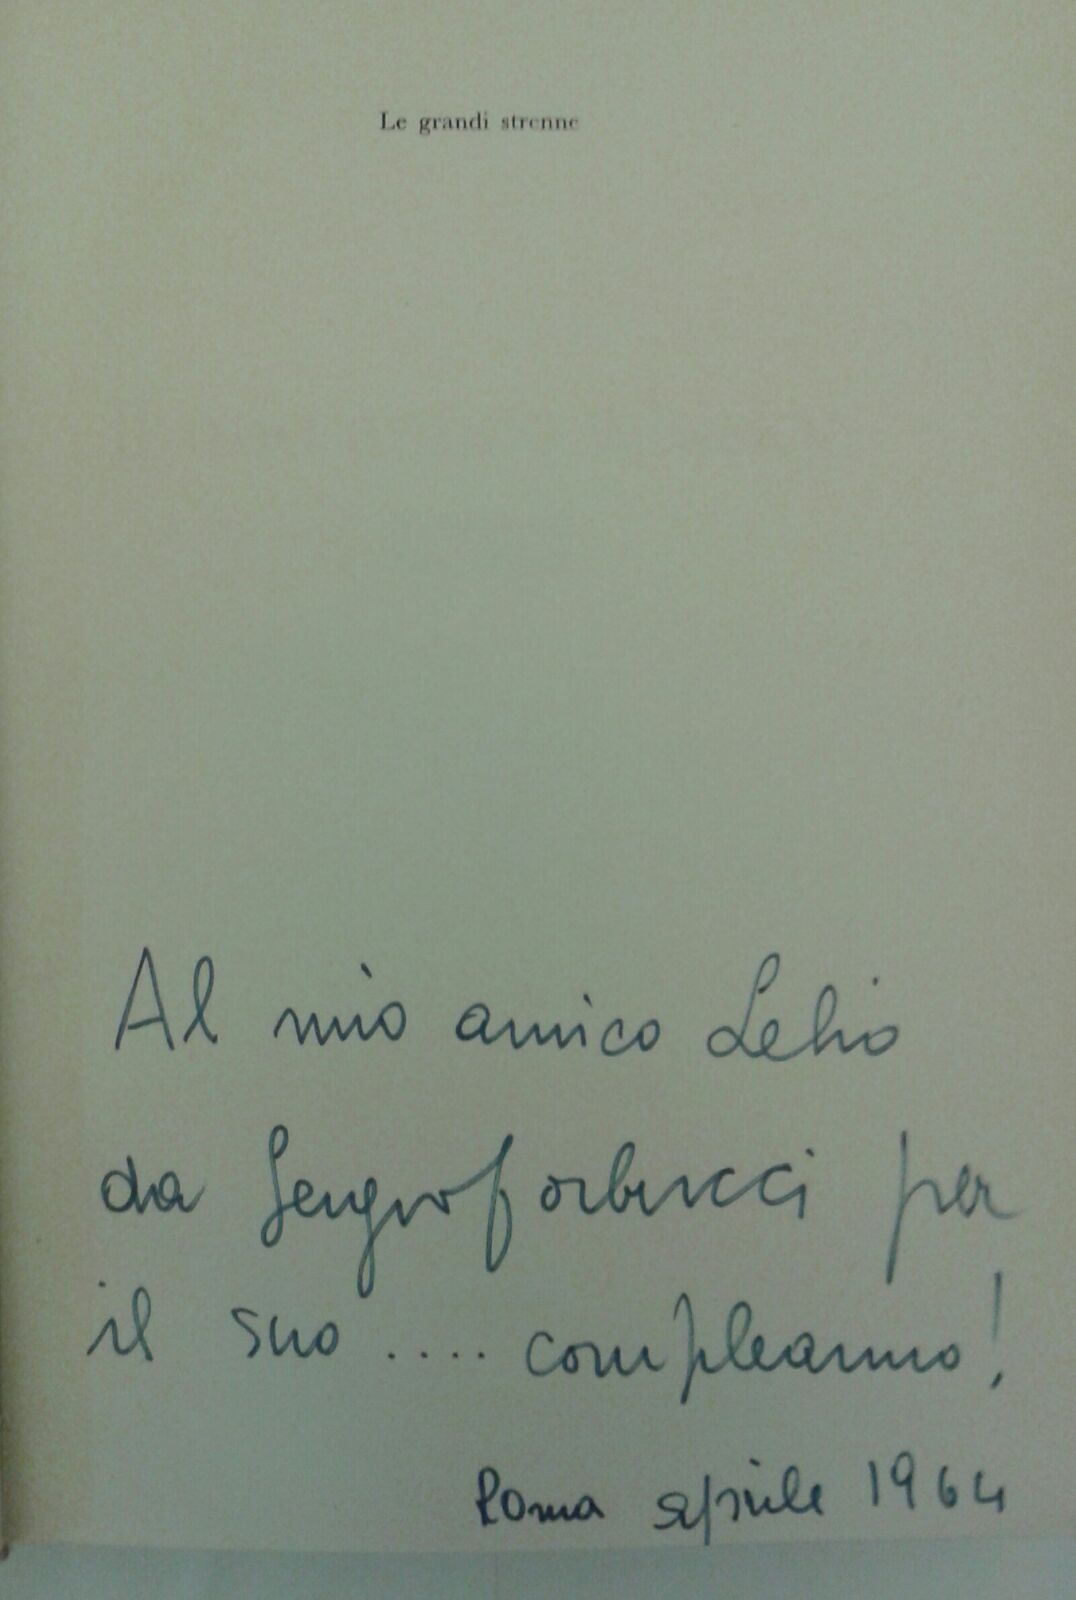 Le grandi strenne
Al mio amico Lelio
da Sergio Corbucci per
il suo .... compleanno!
Roma aprile 1964